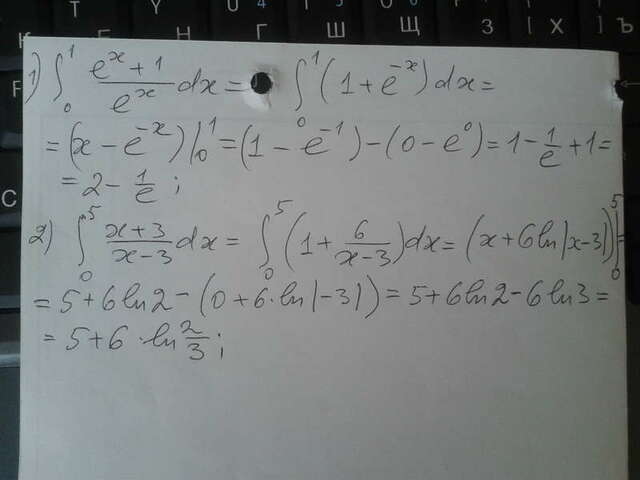 T Y U 4 O 5
F Е Н Г Ш Щ З { Х } Ъ
1) ∫₀¹ (eˣ+1)/eˣ dx = ∫₀¹ (1+e⁻ˣ)dx =
= (x − e⁻ˣ)|₀¹ = (1 − e⁻¹) − (0 − e⁰) = 1 − 1/e + 1 =
= 2 − 1/e ;
C
2) ∫₀⁵ (x+3)/(x−3) dx = ∫₀⁵ (1 + 6/(x−3))dx = (x+6ln|x−3|)|₀⁵ =
= 5+6ln2 − (0+6·ln|−3|) = 5+6ln2−6ln3 =
= 5+6·ln 2/3 ;